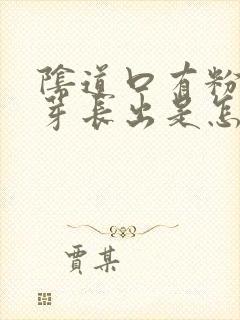 陰道口有粉
芽長出是怎
賈某